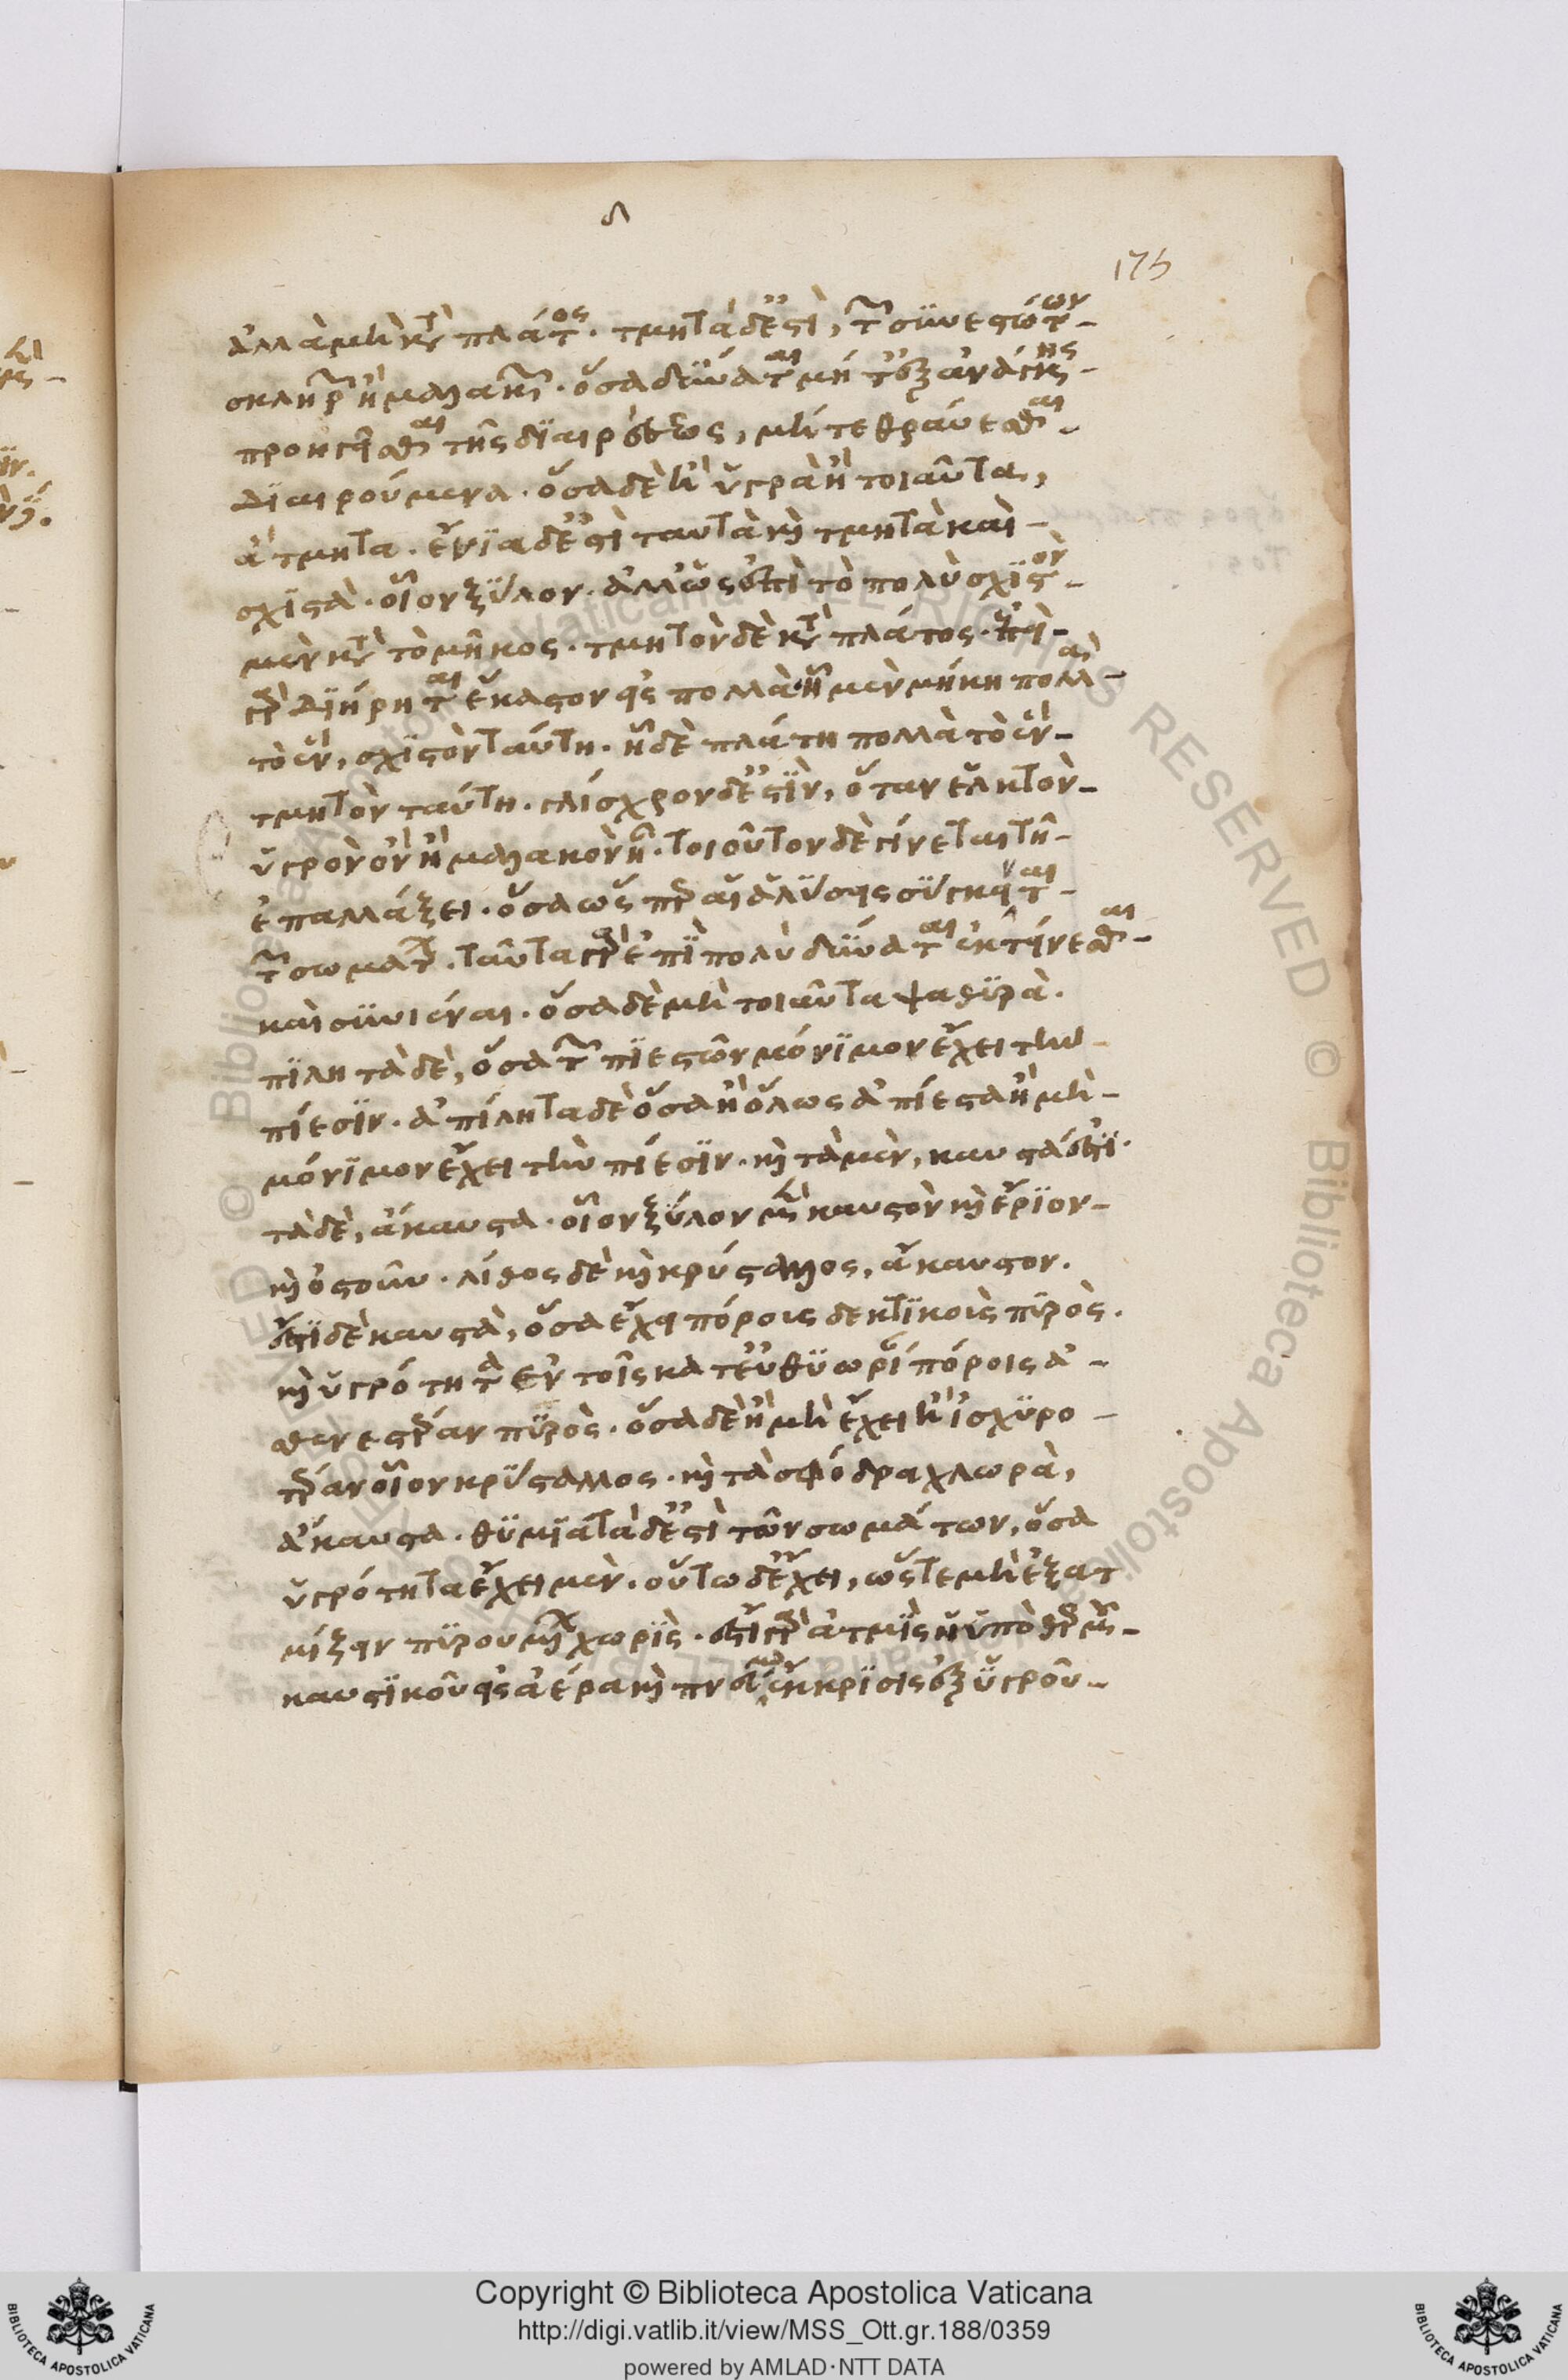 δ
175
ἀλλὰ μὴ κατὰ πλάτος. τμητὰ δ' ἐστὶ, τῶν συνεστώτων
σκληρῶν ἢ μαλακῶν. ὅσα δύναται μήτ' ἐξ ἀνάγκης
προηγεῖσθαι τῆς διαιρέσεως, μήτε θραύεσθαι
διαιρούμενα. ὅσα δὲ ἢ ὑγρὰ ἢ τοιαῦτα,
ἄτμητα. ἔνια δ' ἐστὶ ταυτὰ καὶ τμητὰ καὶ
σχιστὰ. οἷον ξύλον. ἀλλ' ὡς ἐπὶ τὸ πολὺ σχιστὸν
μὲν κατὰ τὸ μῆκος. τμητὸν δὲ κατὰ πλάτος. ἐπεὶ
γὰρ διήρηται ἕκαστον εἰς πολλὰ ᾗ μὲν μήκη πολλὰ
τὸ ἓν, σχιστὸν ταύτη. ᾗ δὲ πλάτη πολλὰ τὸ ἓν
τμητὸν ταύτη. γλίσχρον δ' ἐστὶν, ὅταν ἑλκτὸν
ὑγρὸν ὂν ἢ μαλακὸν ᾖ. τοιοῦτον δὲ γίνεται τῇ
ἐπαλλάξει. ὅσα ὥσπερ αἱ ἁλύσεις σύγκειται
τῶν σωμάτων. ταῦτα γὰρ ἐπὶ πολὺ δύναται ἐκτείνεσθαι
καὶ συνιέναι. ὅσα δὲ μὴ τοιαῦτα ψαθυρά.
πιλητὰ δὲ, ὅσα τῶν πιεστῶν μόνιμον ἔχει τὴν
πίεσιν. ἀπίλητα δὲ ὅσα ἢ ὅλως ἀπίεστα ἢ μὴ
μόνιμον ἔχει τὴν πίεσιν. καὶ τὰ μὲν, καυστά ἐστι.
τὰ δὲ, ἄκαυστα. οἷον ξύλον μὲν καυστὸν καὶ ἔριον
καὶ ὀστοῦν. λίθος δὲ καὶ κρύσταλλος, ἄκαυστον.
ἔστι δὲ καυστὰ, ὅσα ἔχει πόρους δεκτικοὺς πυρὸς.
καὶ ὑγρότητα ἐν τοῖς κατ' εὐθυωρίαν πόροις ἀ
σθενεστέραν πυρὸς. ὅσα δὲ ἢ μὴ ἔχει ἢ ἰσχυρο
τέραν οἷον κρύσταλλος. καὶ τὰ σφόδρα χλωρὰ,
ἄκαυστα. θυμιατὰ δ' ἐστὶ τῶν σωμάτων, ὅσα
ὑγρότητα ἔχει μὲν. οὕτω δ' ἔχει, ὥστε μὴ ἐξατ
μίζειν πυρουμένων χωρὶς. ἔστι γὰρ ἀτμὶς ἡ ὑπὸ θερμοῦ
καυστικοῦ εἰς ἀέρα καὶ πνεῦμα ἔκκρισις ἐξ ὑγροῦ